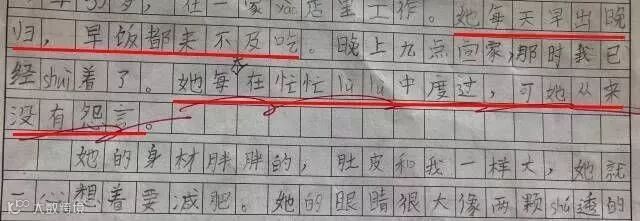 岁，在一家yao店里工作。她每天早出晚
归，早饭都来不及吃。晚上九点回家，那时我已
经shuì着了。她每天在忙忙lù lù中度过，可她从来
没有怨言。
她的身材胖胖的，肚皮和我一样大，她就
一……想着要减肥。她的眼睛很大像两颗shuǐ透的
大数跨境